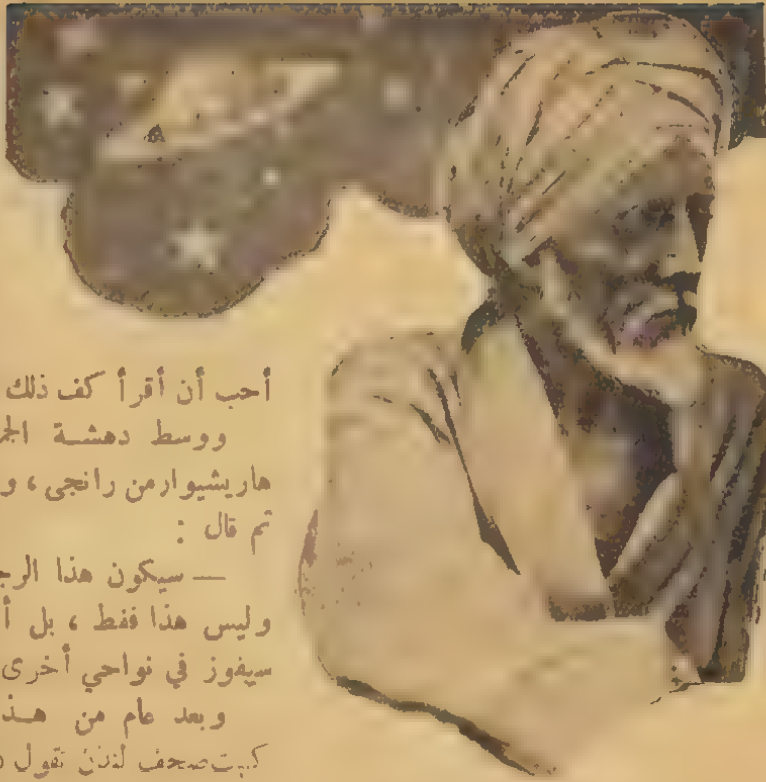 أحب أن أقرأ كف ذلك
ووسط دهشة الج
هاريشيوار من رانجى ، و
ثم قال :
— سيكون هذا الرج
وليس هذا فقط ، بل أ
سيفوز في نواحي أخرى
وبعد عام من هذ
كتبت صحف لندن تقول